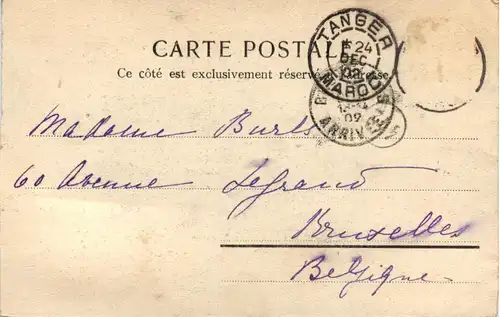 CARTE POSTALE
Ce côté est exclusivement réservé à l'adresse
TANGER
24
DEC
02
MAROC
ARRIVÉE
Madame Burls
60 Avenue Legrand
Bruxelles
Belgique